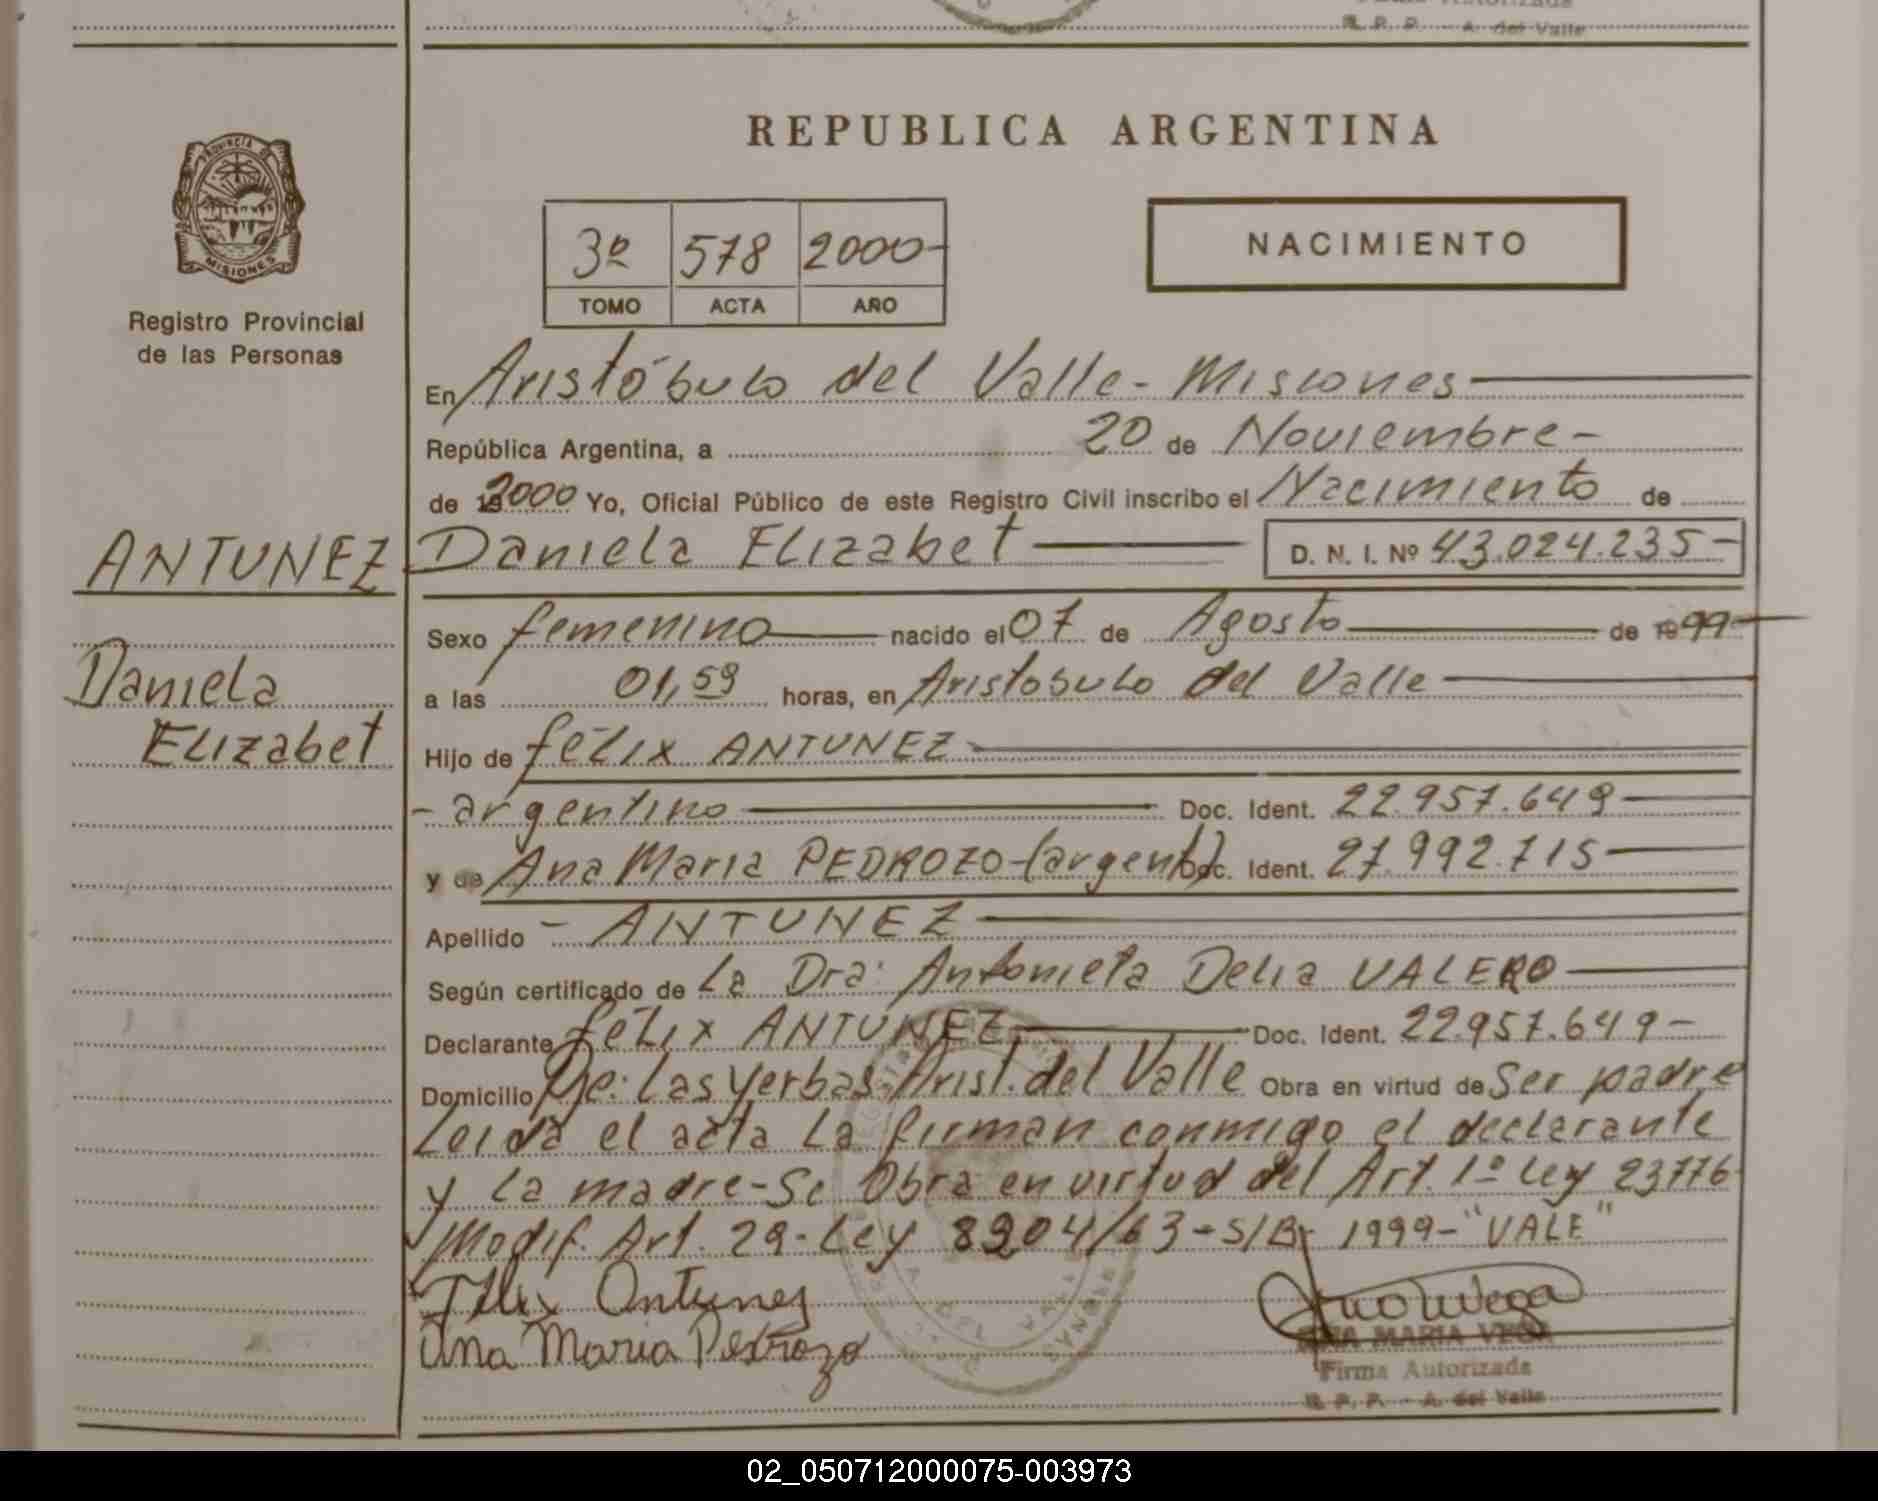 Firma Autorizada
R. P. P. - A. del Valle
REPUBLICA ARGENTINA
PROVINCIA DE
MISIONES
3º 578 2000-
TOMO ACTA AÑO
NACIMIENTO
Registro Provincial
de las Personas
En Aristóbulo del Valle - Misiones
República Argentina, a 20 de Noviembre -
de 2000 Yo, Oficial Público de este Registro Civil inscribo el Nacimiento de
ANTUNEZ Daniela Elizabet D. N. I. Nº 43.024.235-
Sexo femenino nacido el 07 de Agosto de 1999-
Daniela
a las 01,59 horas, en Aristobulo del Valle
Elizabet
Hijo de félix ANTUNEZ
- argentino Doc. Ident. 22.957.649
y de Ana Maria PEDROZO-(argent) Doc. Ident. 27.992.715
Apellido - ANTUNEZ
Según certificado de La Dra. Antonieta Delia VALERO
Declarante félix ANTUNEZ Doc. Ident. 22.957.649-
Domicilio Pje: Las Yerbas-Arist. del Valle Obra en virtud de Ser padre
Leida el acta la firman conmigo el declarante
y la madre-Se Obra en virtud del Art. 1º Ley 23776
Modif. Art. 29-Ley 8204/63-S/B- 1999-"VALE"
Félix Antunez
Ana Maria Pedrozo
ANA MARIA VEGA
Firma Autorizada
R. P. P. - A. del Valle
02_050712000075-003973